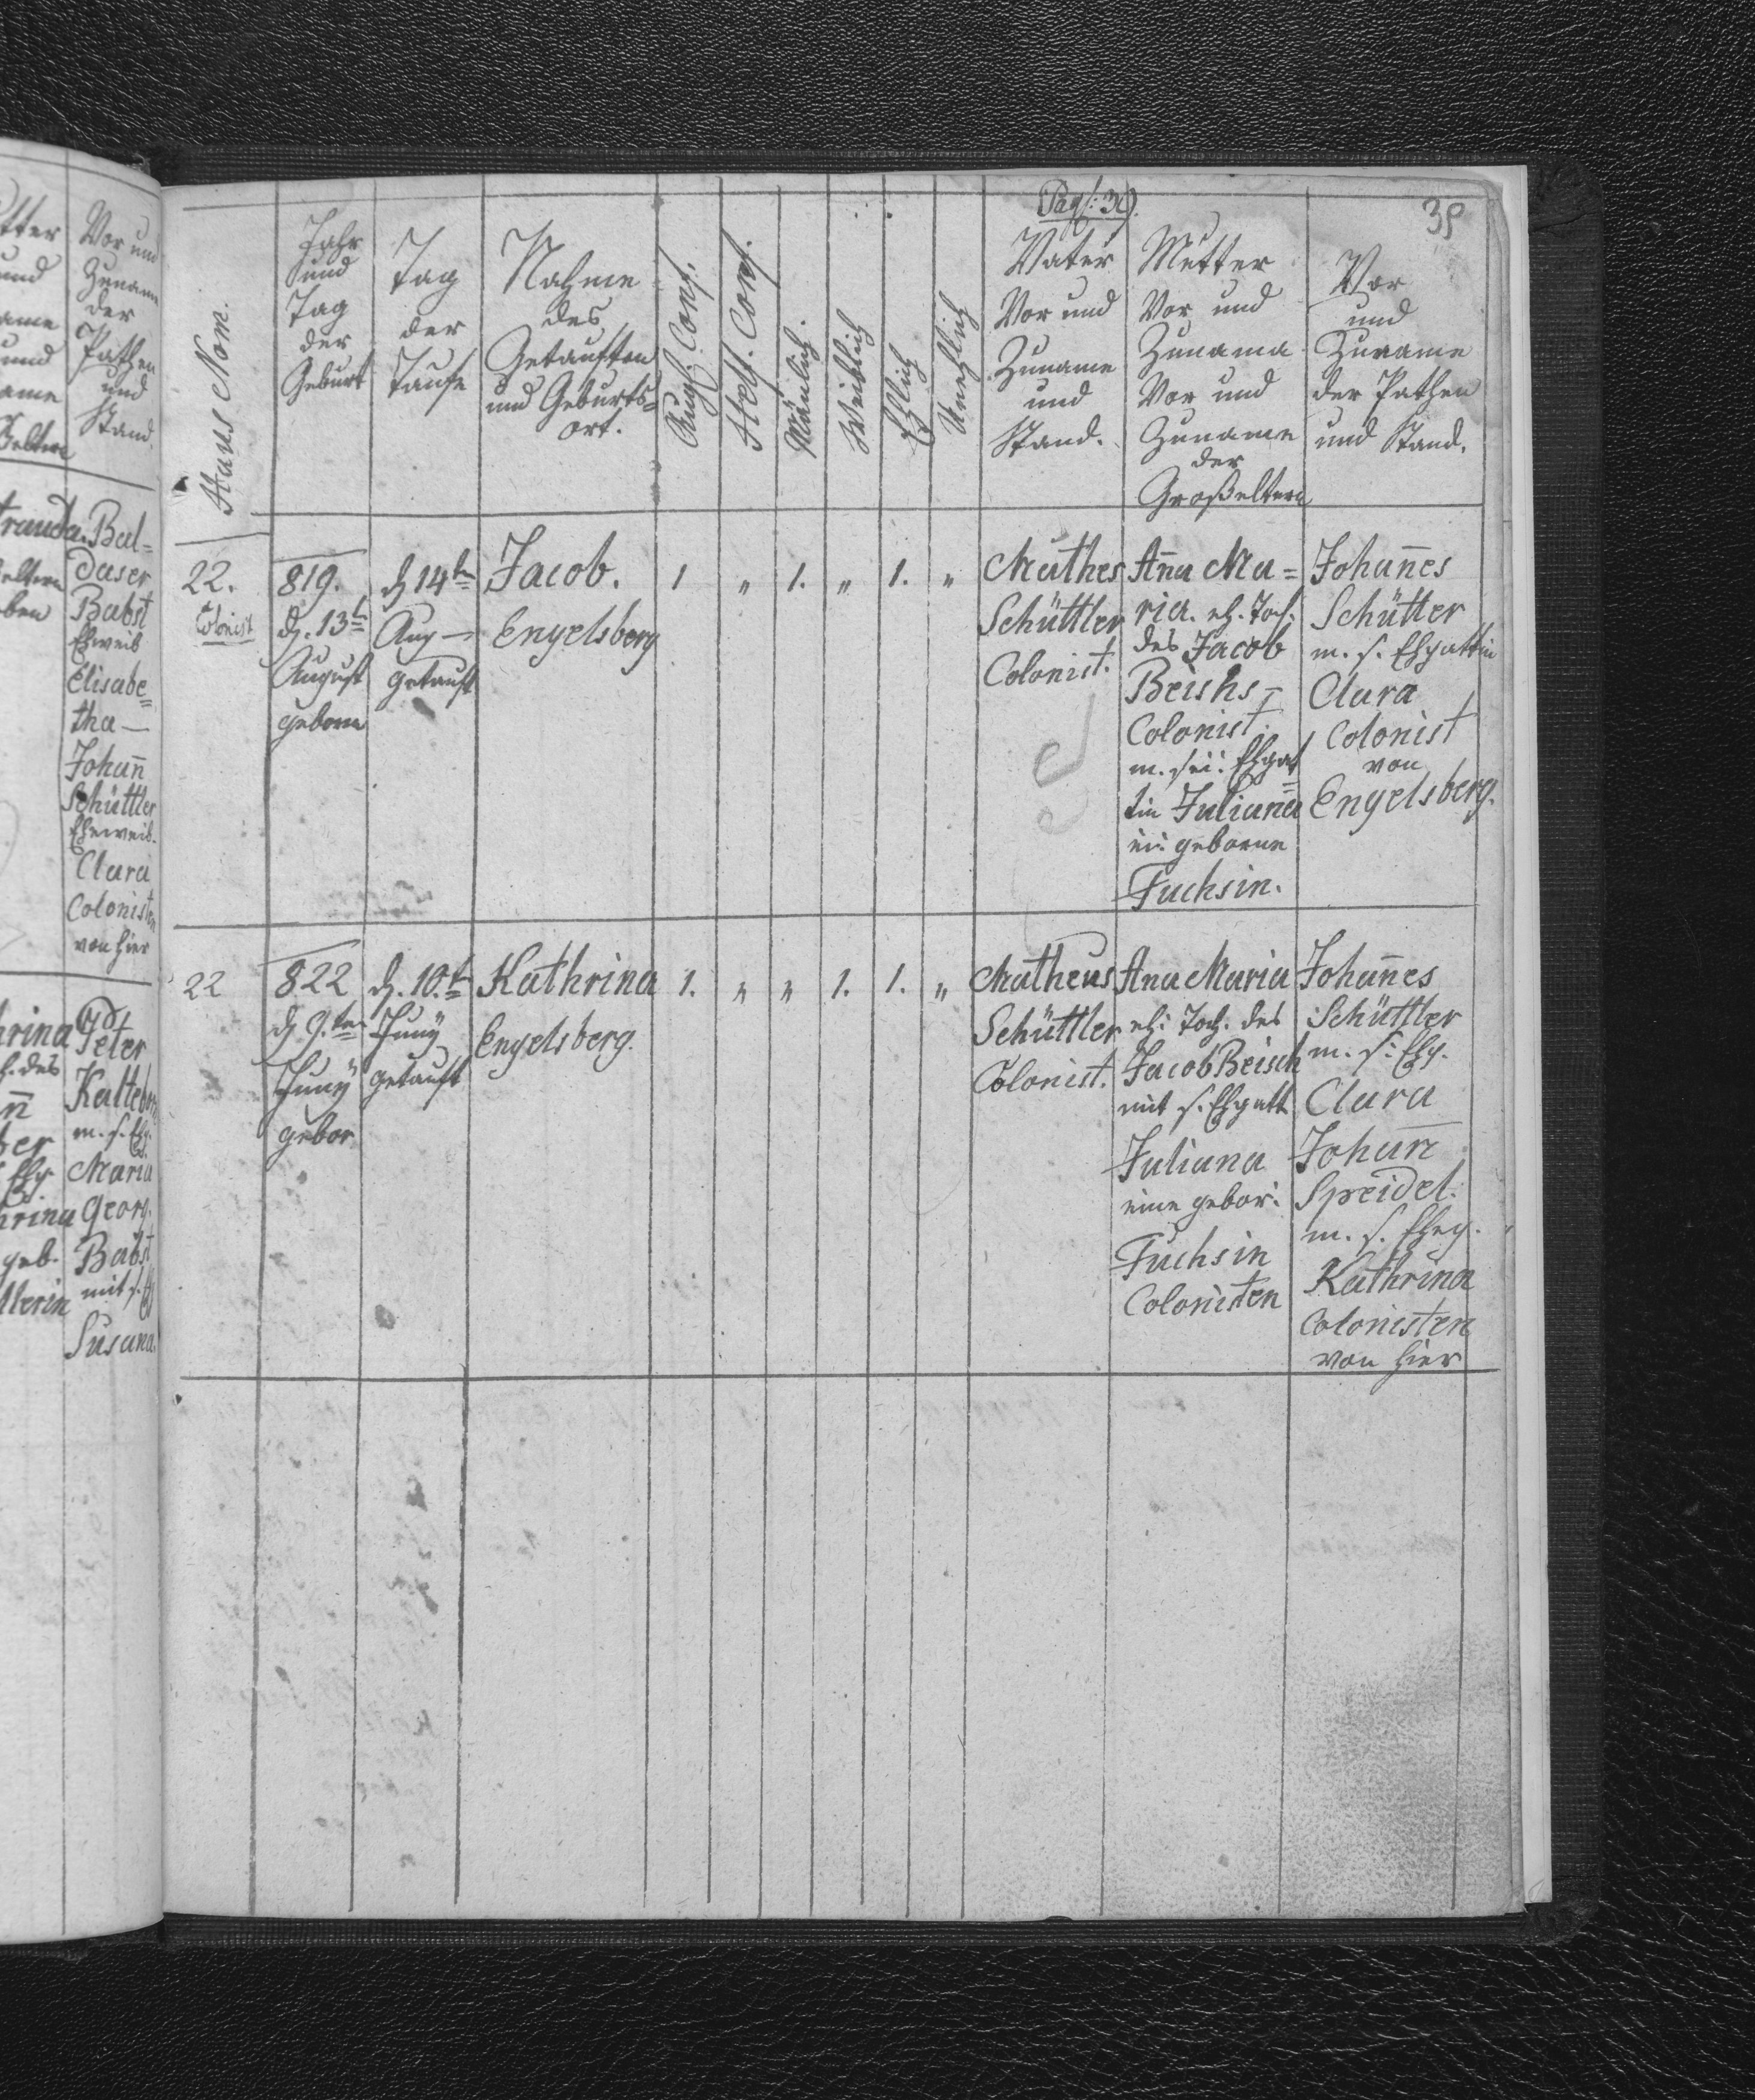 Pag: 39.
39
Haus Nom.
Jahr
und
Tag
der
Geburt
Tag
der
Taufe
Nahme
des
Getauften
und Geburts=
ort.
Augs. Conf.
Helv. Conf.
Mänlich.
Weiblich
Ehlich
Unehlich
Vater
Vor und
Zuname
und
Stand.
Mutter
Vor und
Zuname
Vor und
Zuname
der
Großeltern
Vor
und
Zuname
der Pathen
und Stand.
22.
Colonist
819.
d. 13t
August
geborn
d 14tn
Aug —
getauft
Jacob.
Engelsberg
1 " 1. " 1. "
Mathes
Schüttler
Colonist.
Aña Ma=
ria. eh. Toch.
des Jacob
Beishs –
Colonist.
m. sei: Ehgat
tin Juliana
ei: geborne
Fuchsin.
Johañes
Schütter
m. s. Ehgattin
Clara
Colonist
von
Engelsberg.
22
822
d 9.ten
Juny
gebor
d. 10.t
Juny
getauft
Kathrina
Engelsberg.
1. " " 1. 1. "
Matheus
Schüttler
Colonist.
Ana Maria
eh: Toch. des
Jacob Beisch
mit s. Ehgatt
Juliana
eine gebor:
Fuchsin
Colonisten
Johañes
Schüttler
m. s: Ehg.
Clara
Johañ
Speidel.
m. s. Eheg.
Kathrina
Colonisten
von hier
Vor und
Zuname
der
Pathen
und
Stand.
Bal=
daser
Babst
Eheweib
Elisabe=
tha —
Johañ
Schüttler
Eheweib.
Clara
Colonisten
von hier
Peter
m. s. Ehg.
Maria
Georg.
Babst
mit s.
Susana.